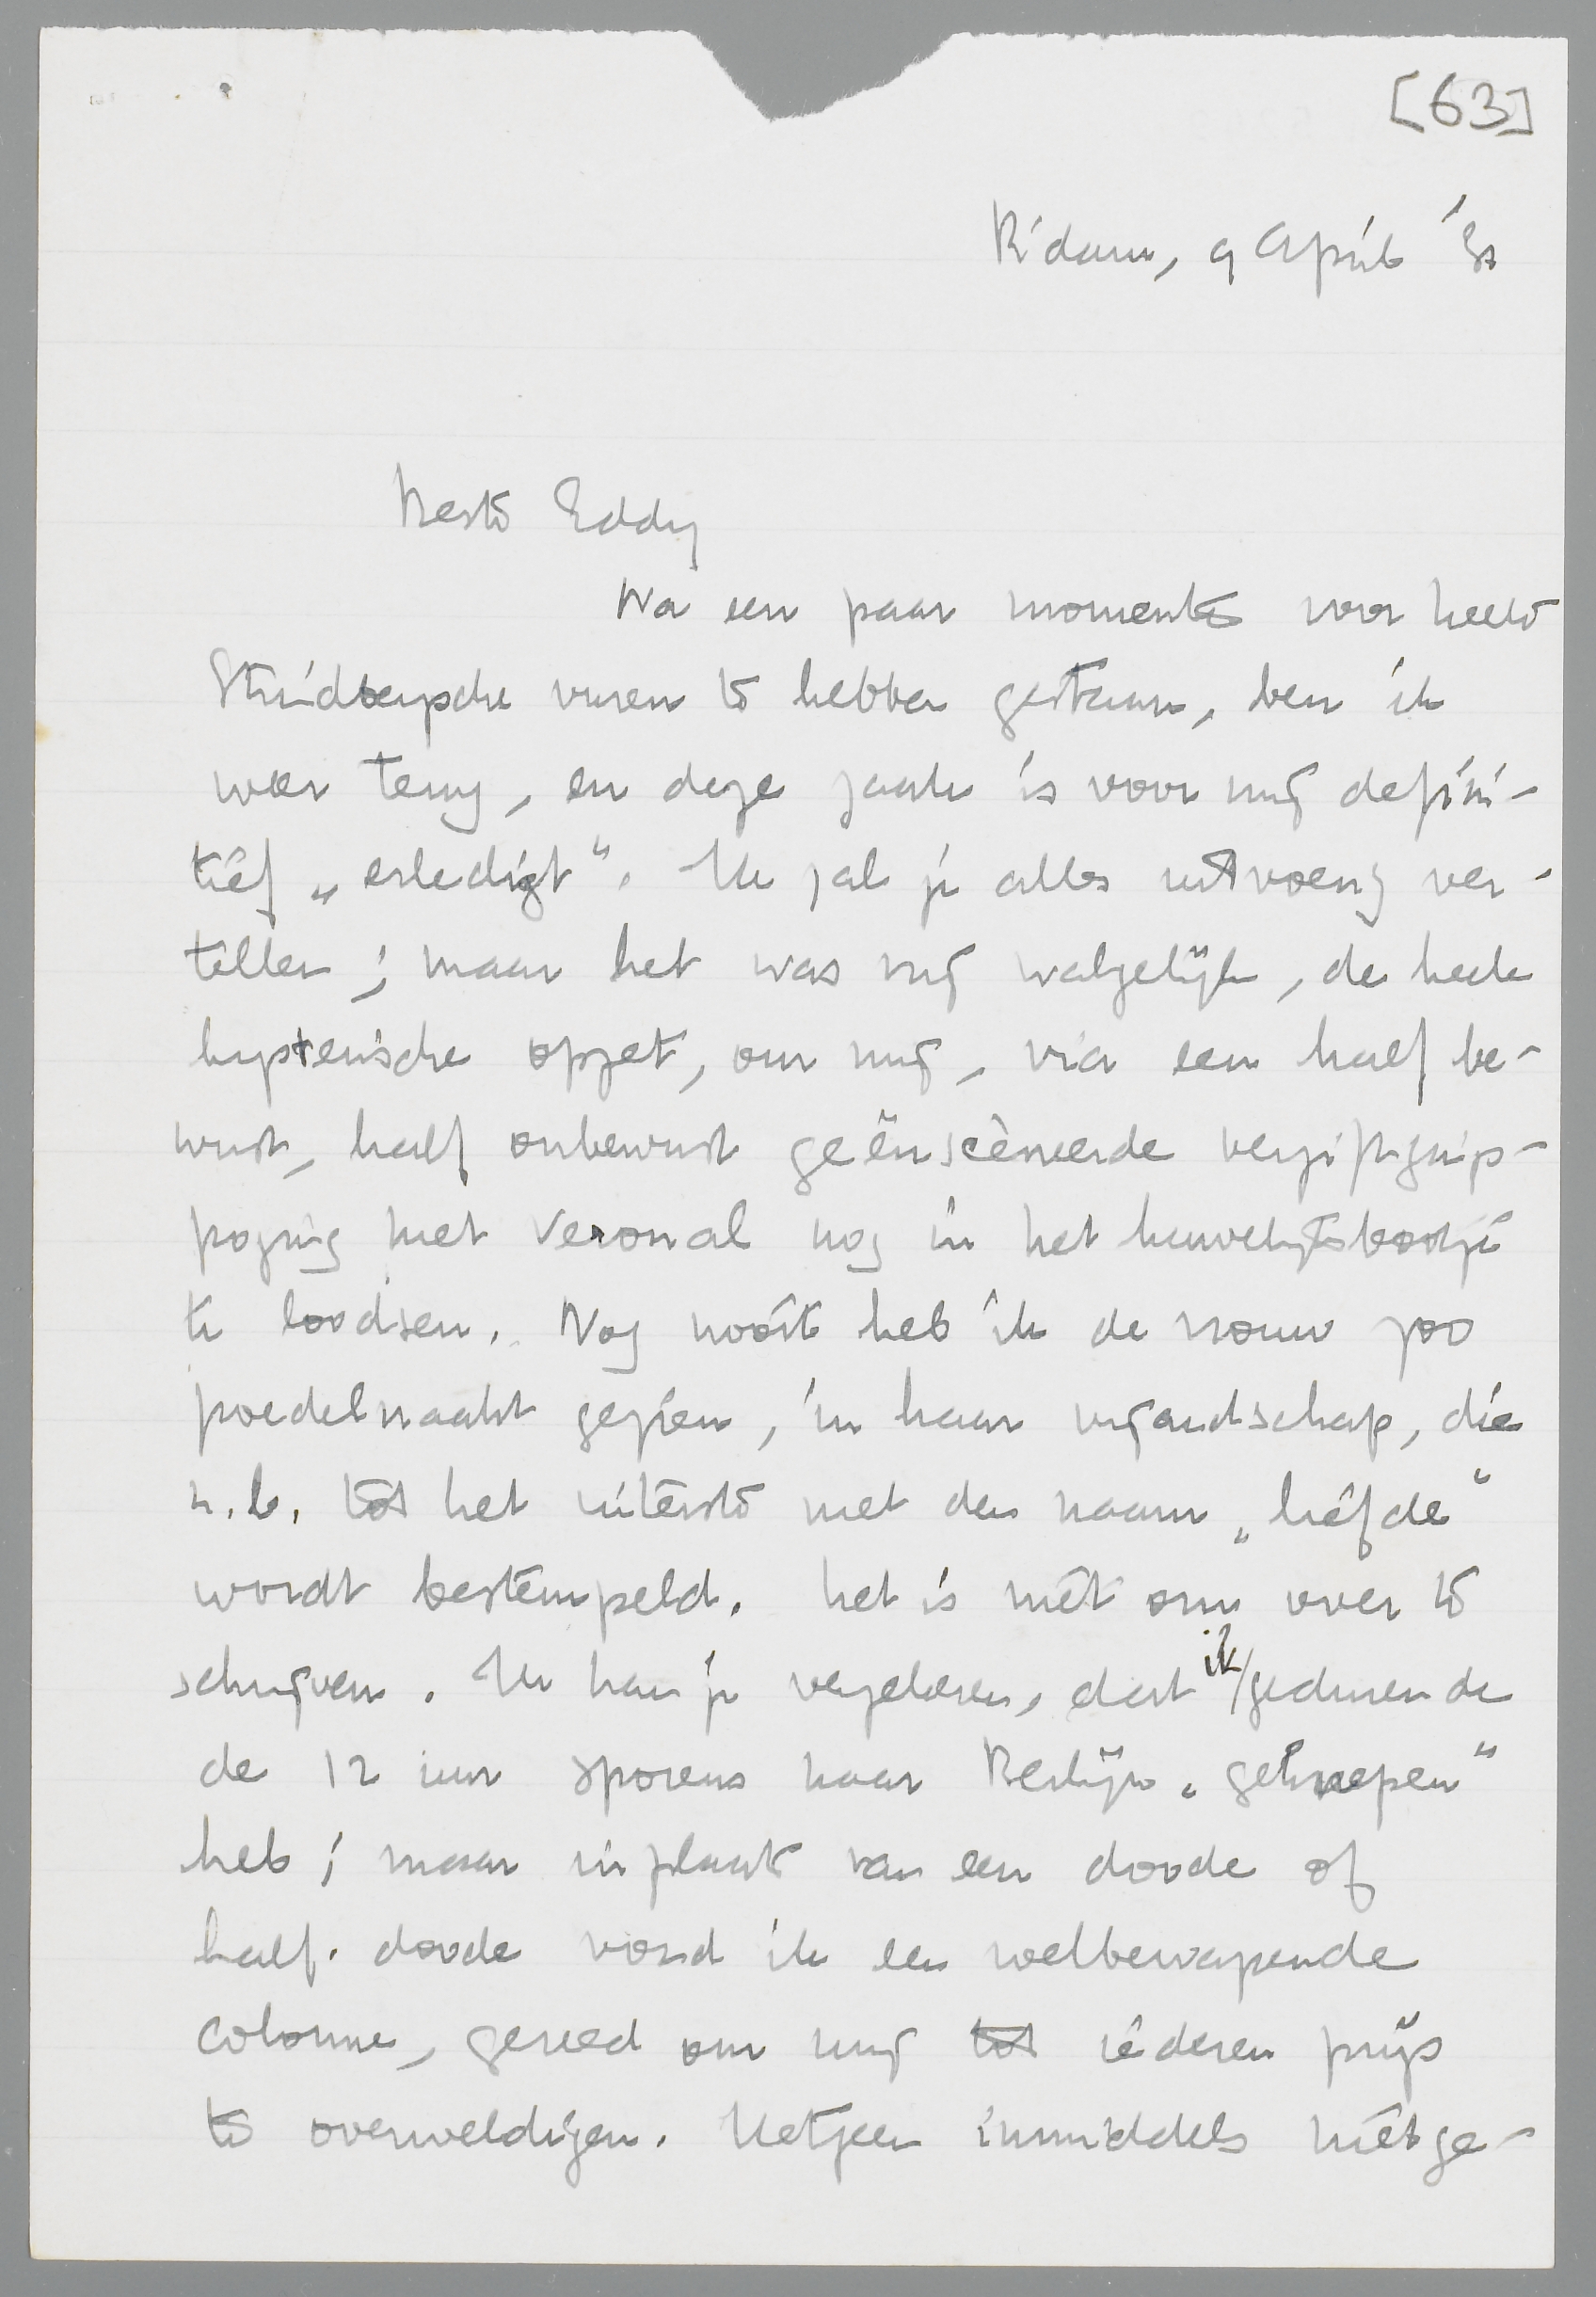 [63]
R'dam, 9 April '32
Beste Eddy
Na een paar momenten voor heete
Strindbergsche vuren te hebben gestaan, ben ik
weer terug, en deze zaak is voor mij defini-
tief „erledigt”. Ik zal je alles uitvoerig ver-
tellen; maar het was mij walgelijk, de heele
hysterische opzet, om mij, via een half be-
wust, half onbewust geënscèneerde vergiftigings-
poging met Veronal nog in het huwelijksbootje
te loodsen. Nog nooit heb ik de vrouw zoo
poedelnaakt gezien, in haar vijandschap, die
n.b. tot het uiterste met den naam „liefde”
wordt bestempeld. Het is niet om over te
schrijven. Ik kan je verzekeren, dat ik gedurende
de 12 uur sporens naar Berlijn „geknepen”
heb; maar in plaats van een doode of
half-doode vond ik een welbewapende
colonne, gereed om mij tot iederen prijs
te overweldigen. Hetgeen inmiddels niet ge-